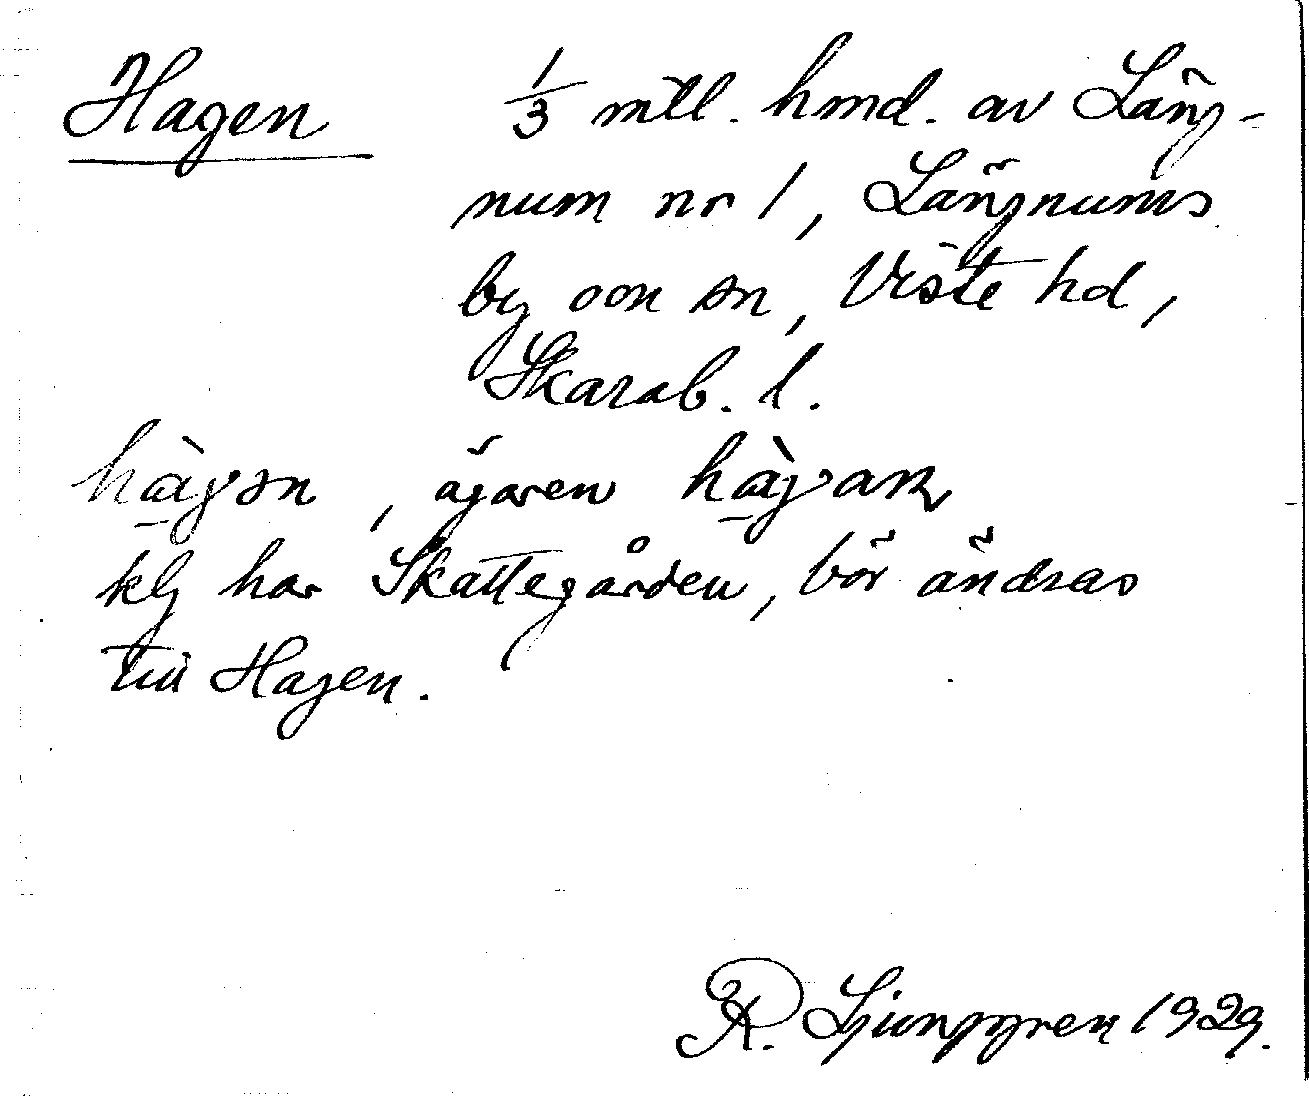 Hagen 1/3 mtl. hmd. av Läng-
num nr 1, Längnums
by o on sn, Viste hd,
Skarab. l.
hàgən, ägaren hàgan
klj har Skattegården, bör ändras
till Hagen.
R. Ljunggren 1929.